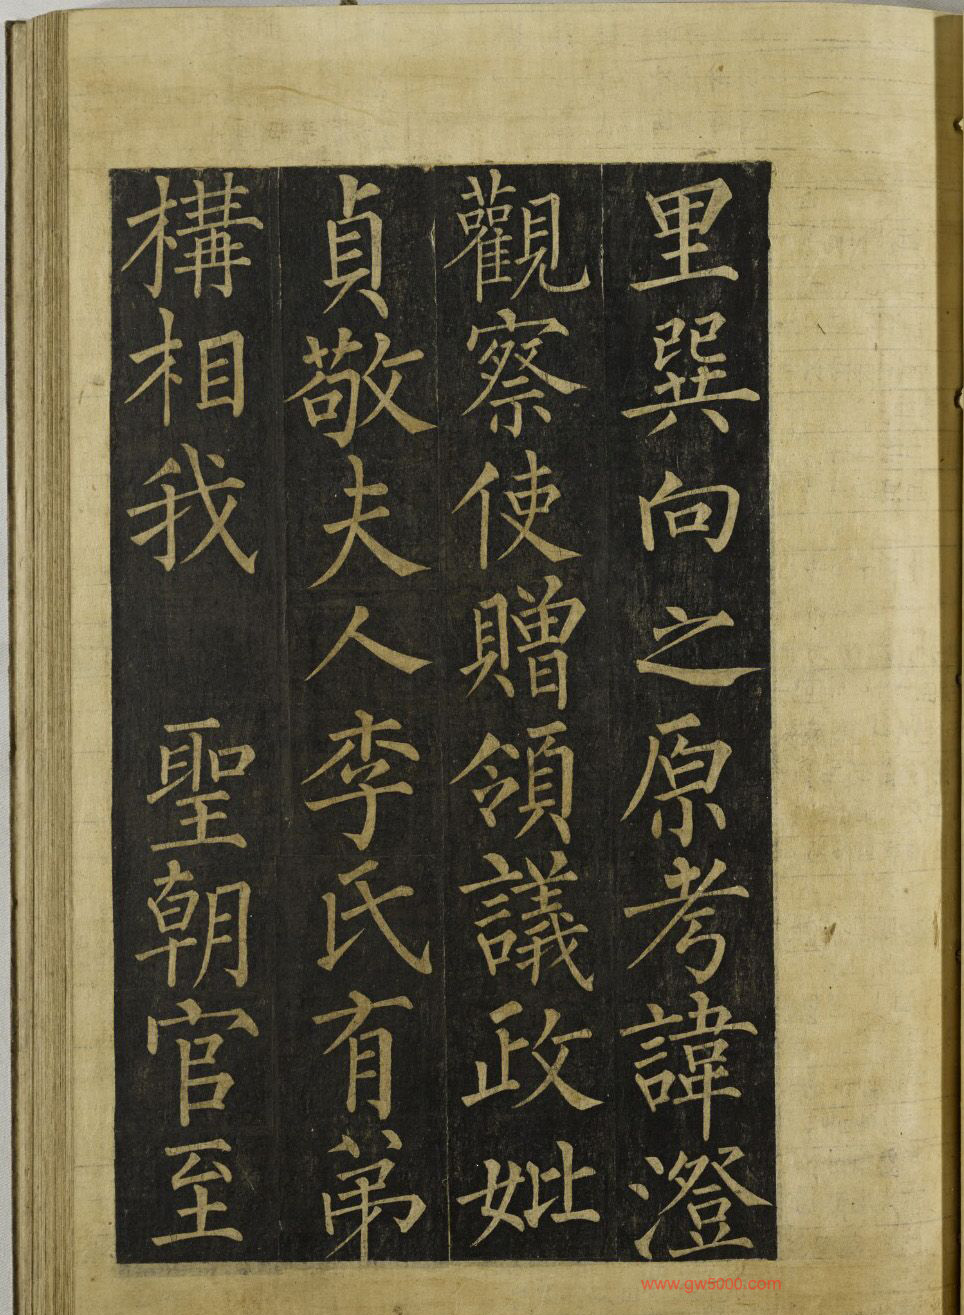 里巽向之原考諱澄
觀察使贈領議政妣
貞敬夫人李氏有弟
構相我 聖朝官至
www.gw5000.com